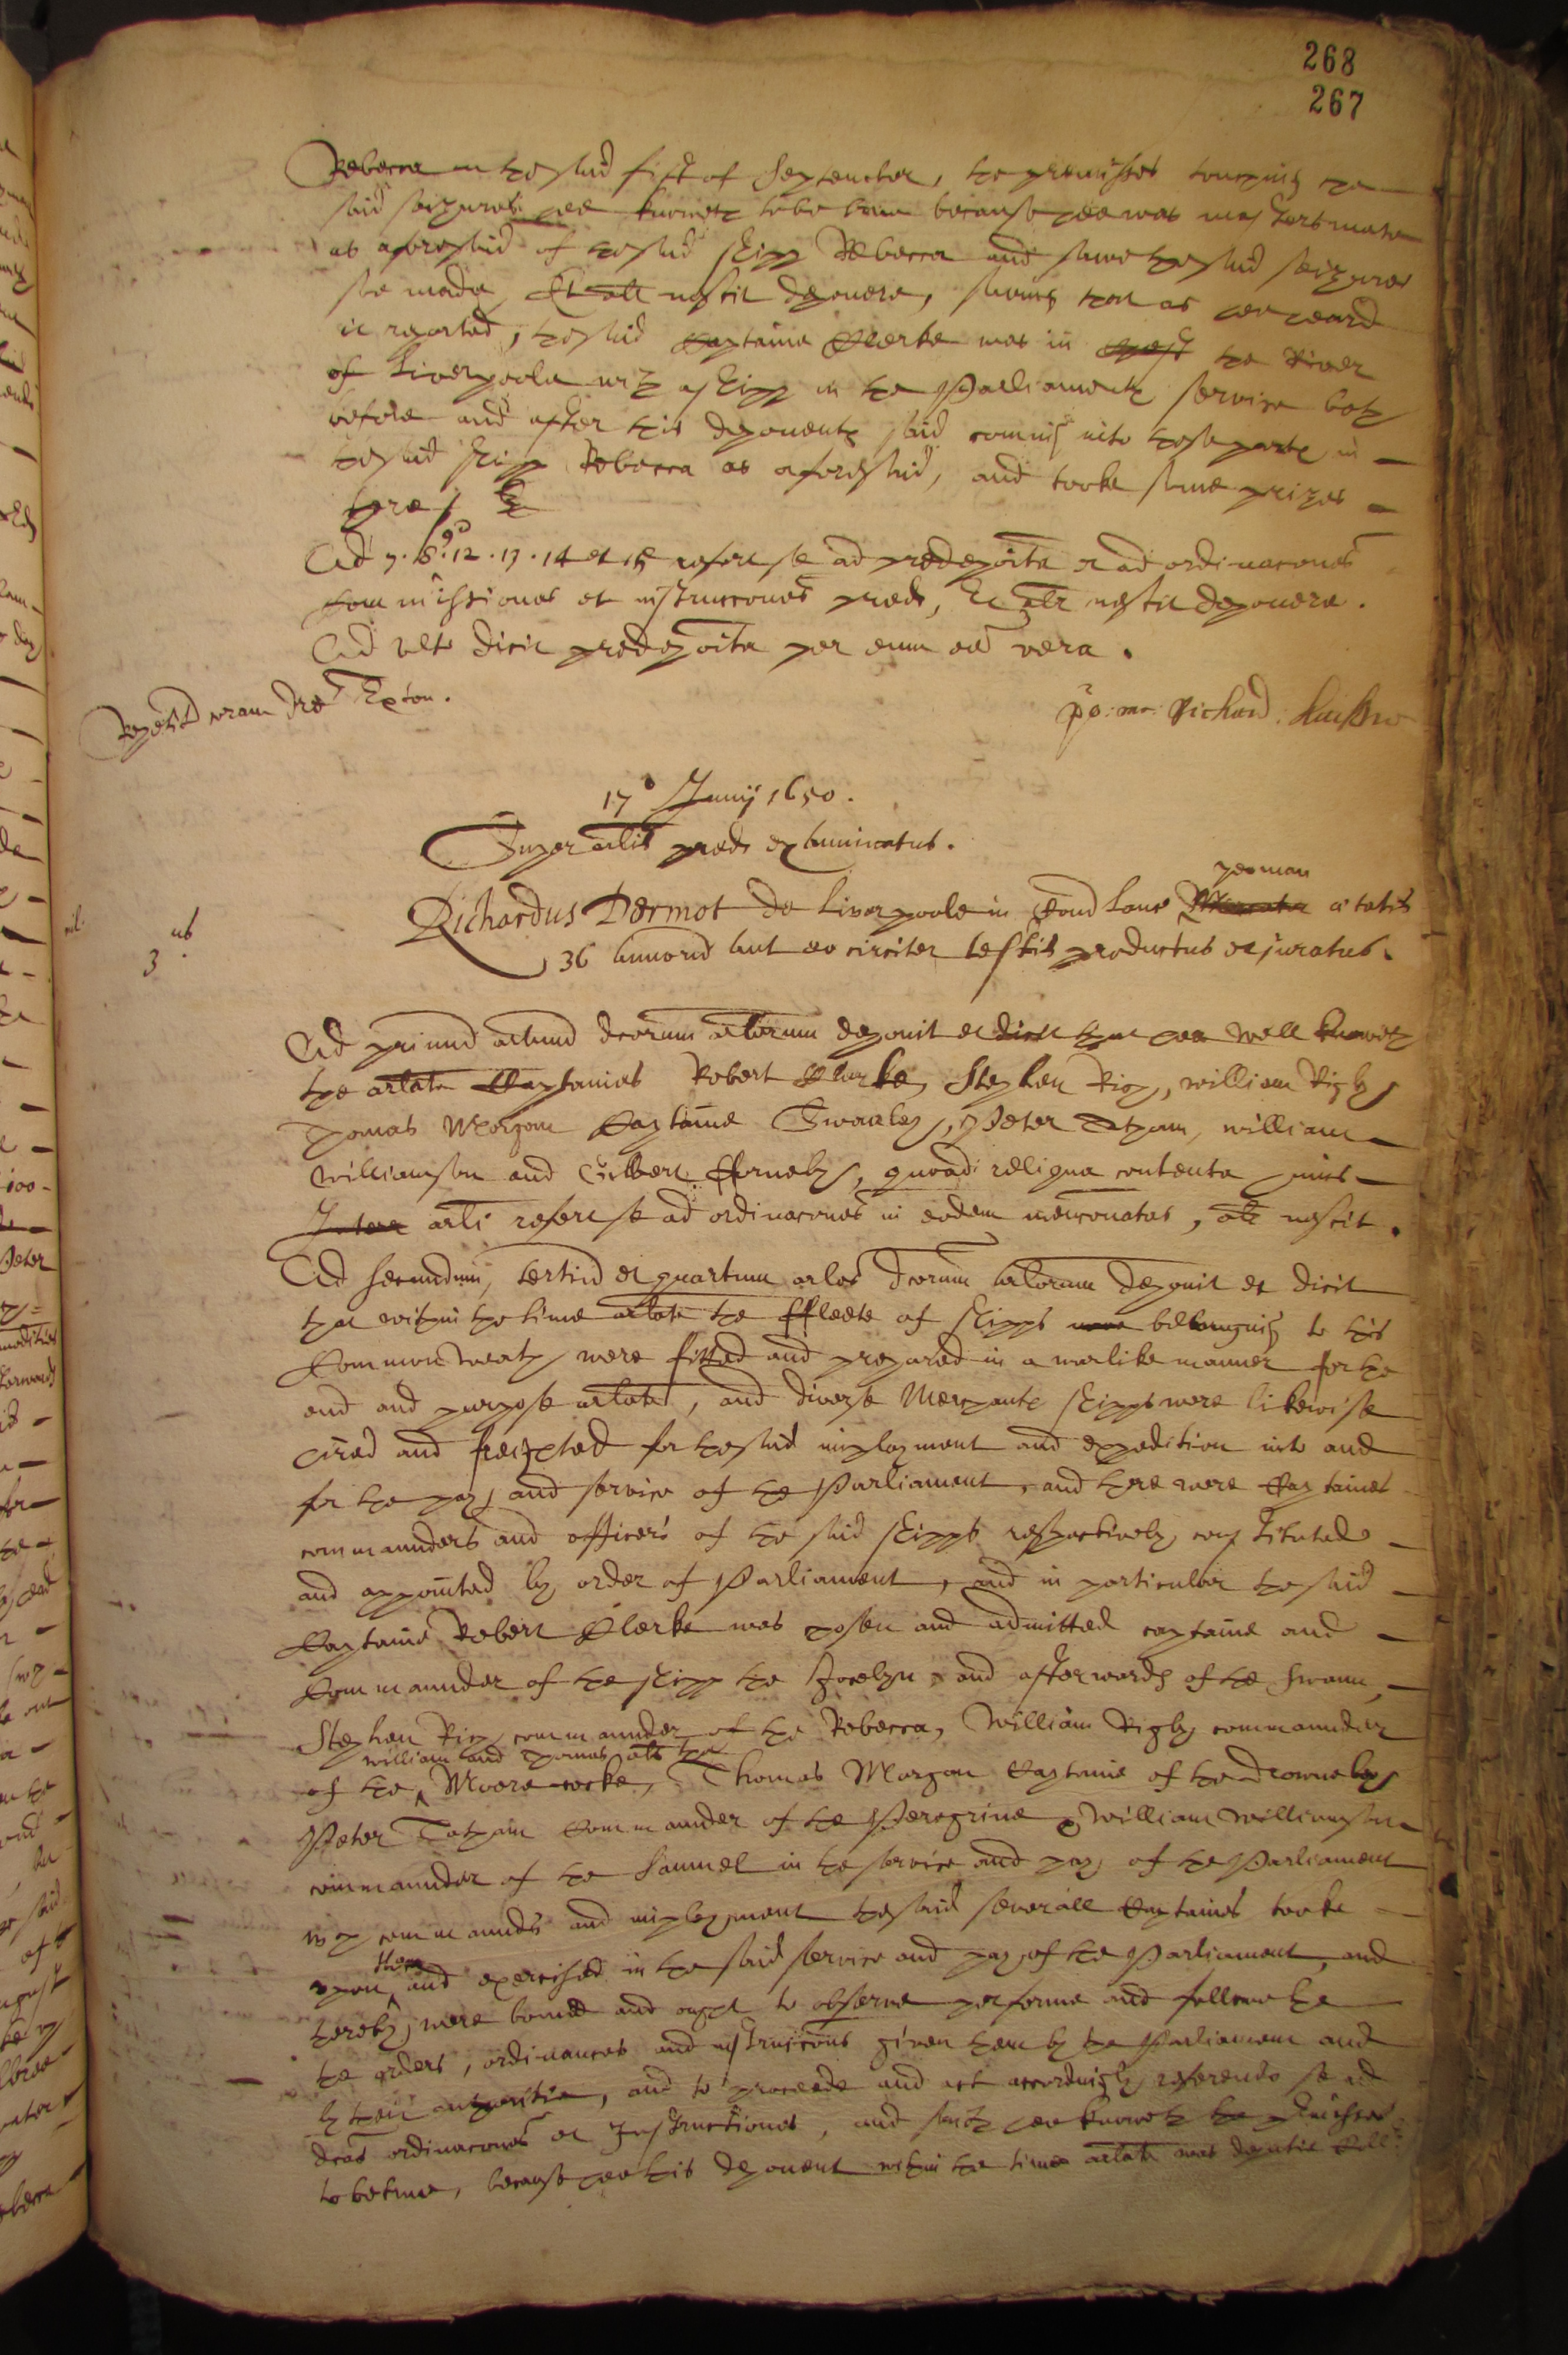 268
267
Rebecca on the said first of September, the premisses touching the
said seizures hee knoweth to be true because hee was masters mate
as aforesaid of the said shipp Rebecca and sawe the said seizures
soe made, Et alr nescit deponere, saving that as hee heard
it reported, the said Captaine Clerke was in the River
of Liverpoole with a shipp in the Parliaments service both
before and after this deponents said coming into those parts in
the said shipp Rebecca as aforesaid, and tooke some prizes
there /
Ad 7. 8. 9º 12. 13. 14 et 15 refert se ad predeposita et ad ordinacones
Commissiones et instruccones pred, Et alr nescit deponere.
Ad ult dicit predeposita per eum esse vera.
Repetit coram dre Exton.
Richard
17º Junij 1650.
Super arlis pred examinatus.
yeoman
Richardus Dermot de Liverpoole in Com Lanc Mercator ætatis
36 annorū aut eo circiter testis productus et juratus.
3us
Ad primū arlum dcorum arlorum deponit et dicit that hee well knoweth
the arlate Captaines Robert Clerke, Stephen Rich, william Rigby
Thomas Morgan Captaine Swanley, Peter Tatham, william
williamson and Gilbert, quoad reliqua contenta huius
arli refert se ad ordinacones in eodem menconatas, alr nescit.
Ad secundum, tertiū et quartum arlos dcorum arlorum deponit et dicit
that within the time arlate the ffleete of shipps were belonging to this
Common wealth were fitted and prepared in a warlike manner for the
end and purpose arlate, and diverse Merchants shipps were likewise
hired and freighted for the said imployment and expedition into and
for the pay and service of the Parliament, and there were Captaines
commaunders and officers of the said shipps respectively constituted
and appointed by order of Parliament, and in particular the said
Captaine Robert Clerke was chosen and admitted captaine and
Commaunder of the shipp the Jocelyn and afterwards of the Swann,
Stephen Rich commaunder of the Rebecca, William Rigby commaunder
william and Thomas als the
of the Moore cocke, Thomas Morgan Captaine of the
Peter Tatham Commaunder of the Peregrine, william williamson
commaunder of the Samuel in the service and pay of the Parliament
which commaunds and imployment the said severall Captaines tooke
them
upon and exercised in the said service and pay of the Parliament, and
thereby were bound and ought to observe performe and followe the
the orders, ordinances and instruccons given them by the Parliament and
by their authoritie, and to proceede and act accordingly referendo se ad
dcas ordinacones et Instructiones, and saith hee knoweth the premisses
to be true, because hee this deponent within the time arlate was deputie Coll